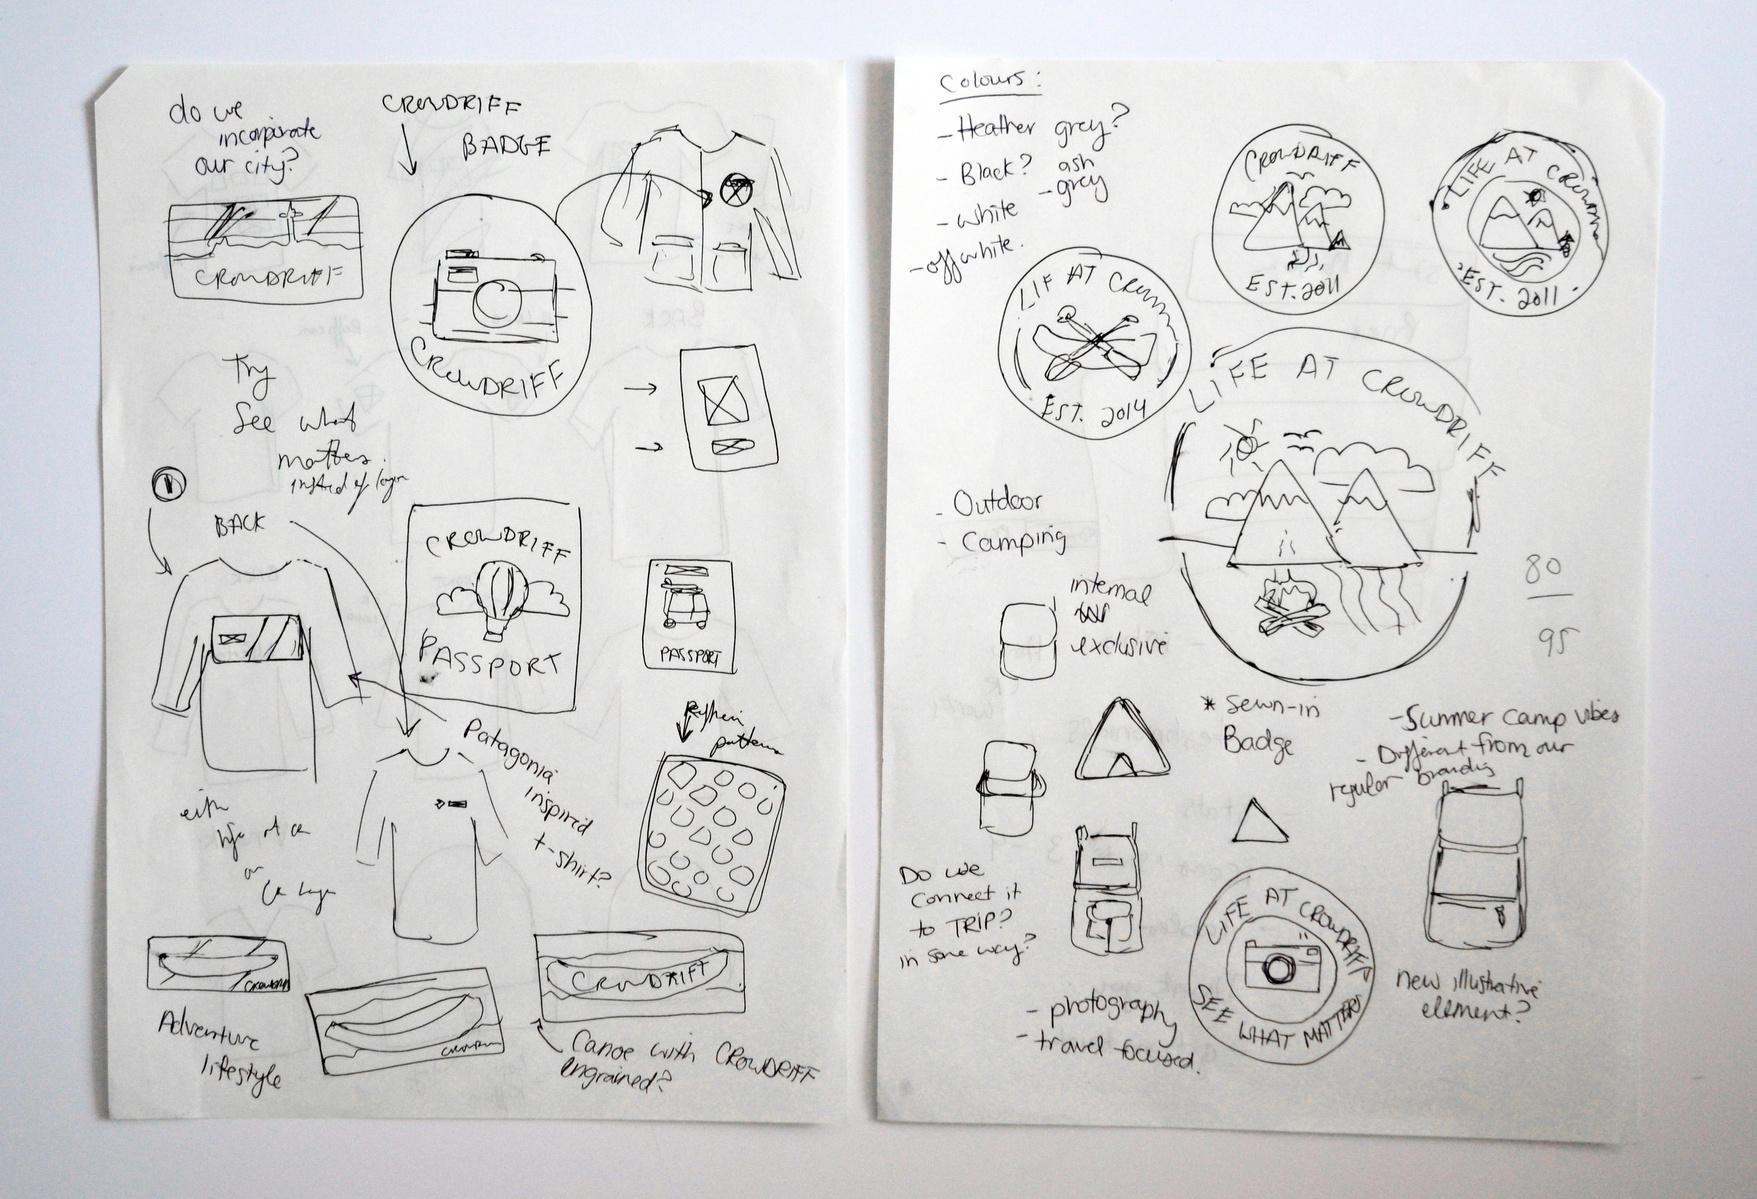 do we
incorpirate
our city?
CROWDRIFF
CROWDRIFF
BADGE
CROWDRIFF
Try
See what
matters.
instead of logo
1
BACK
CROWDRIFF
PASSPORT
PASSPORT
Patagonia
inspired
t-shirt?
patterns
with
life at CR
or
CR logo
CROWDRIFF
Adventure
lifestyle
CROWDRIFT
Canoe with CROWDRIFF
engrained?
Colours:
- Heather grey?
- Black?
ash
- grey
- white
- off white.
CROWDRIFF
EST. 2011
LIFE AT
EST. 2011
LIF AT
EST. 2014
LIFE AT CROWDRIFF
- Outdoor
- Camping
internal
exclusive
80
95
* Sewn-in
Badge
- Summer camp vibes
- Different from our
regular branding
Do we
connect it
to TRIP?
in some way?
LIFE AT CROWDRIFF
SEE WHAT MATTERS
- photography
- travel focused.
new illustrative
element?